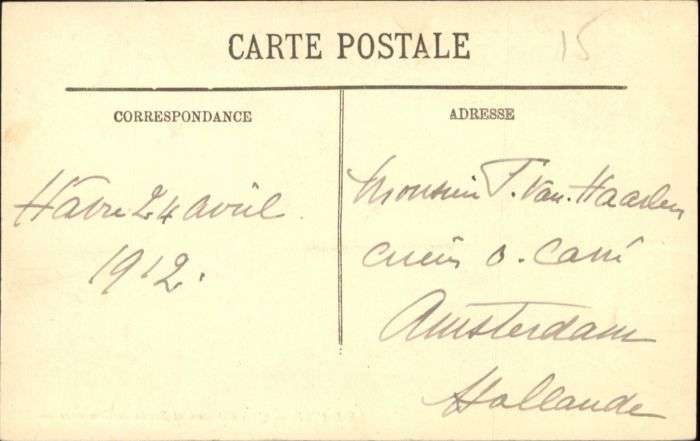 CARTE POSTALE
15
CORRESPONDANCE
ADRESSE
Havre 24 avril
1912.
Monsieur T. Van. Haarlen
o. Carré
Amsterdam
Hollande